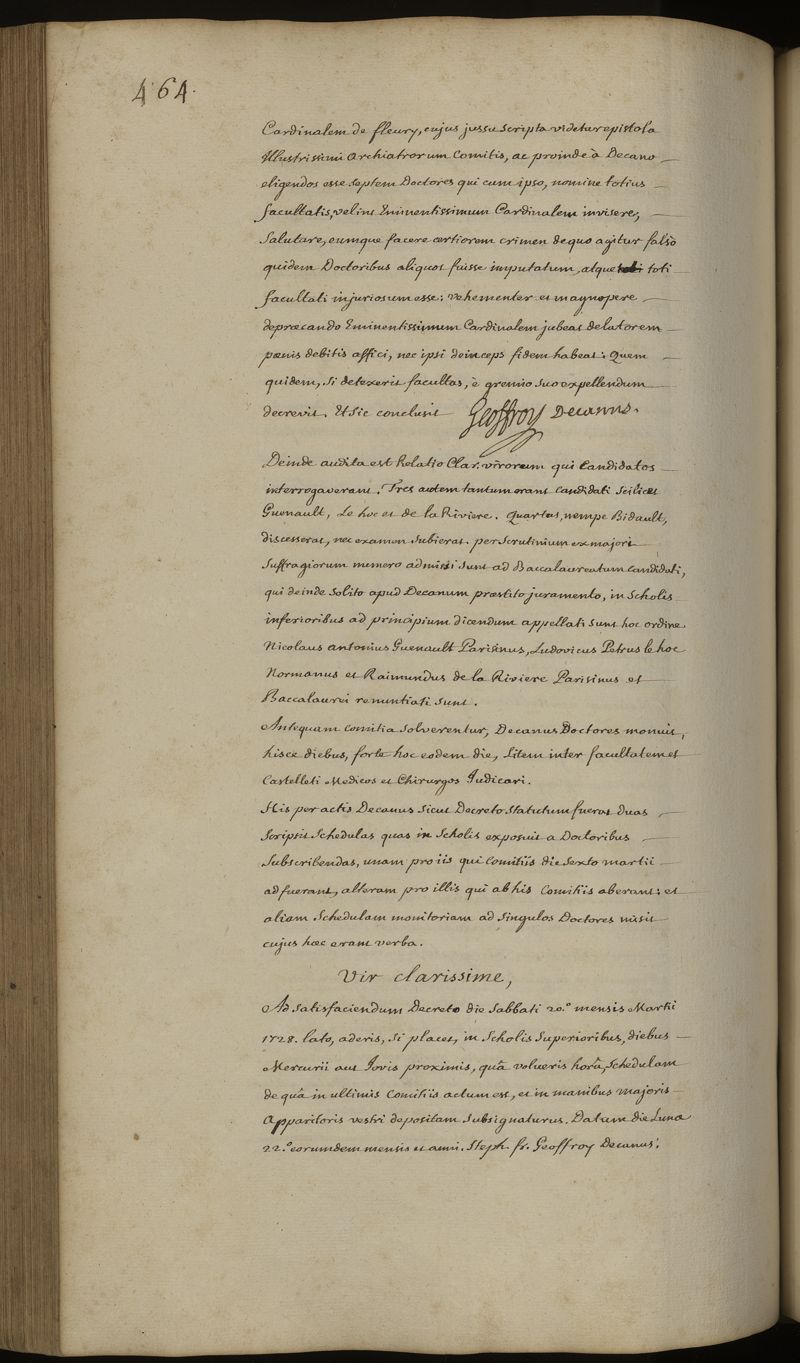 464.
Cardinalem de fleury, cujus jussu scripta videtur epistola
Illustrissimi Archiatrorum Comitis, ac proinde à Decano
eligendos esse septem Doctores qui cum ipso, nomine totius
facultatis, velint Eminentissimum Cardinalem invisere,
Salutare, eumque facere certiorem crimen de quo agitur falsò
quidem Doctoribus aliquot fuisse imputatum, atque toti
facultati injuriosum esse; vehementer et magnopere
depræcando Eminentissimum Cardinalem jubeat delatorem
pænis debitis affici, nec ipsi deinceps fidem habeat: Quem
quidem, si detexerit facultas, è gremio suo expellendum
decrevit. Et sic conclusit Geoffroy Decanus.
Deinde audita est Relatio Clar. virorum qui Candidatos
interrogaverant. Tres autem tantum erant Candidati scilicet
Guenault, Le hoc et de la Riviere. Quartus, nempe Bidault,
discesserat, nec examen subierat. per Scrutinium ex majori
Suffragiorum numero admissi sunt ad Baccalaureatum Candidati,
qui deinde solito apud Decanum præstito juramento, in Scholis
inferioribus ad principium dicendum appellati sunt hoc ordine
Nicolaus Antonius Guenault Parisinus, Ludovicus Petrus le hoc
Normanus et Raimundus de la Riviere Parisinus et
Baccalaurei renuntiati sunt.
Antequam comitia solverentur, Decanus Doctores monuit,
hisce diebus, forte hoc eodem die, Litem inter facultatem et
Castelleti Medicos et Chirurgos Judicari.
His peractis Decanus sicut Decreto statutum fuerat duas
scripsit schedulas quas in Scholis exposuit a Doctoribus
Subscribendas, unam pro iis qui Comitiis die sexto martii
adfuerant, alteram pro illis qui ab his Comitiis aberant; et
aliam Schedulam monitoriam ad singulos Doctores misit
cujus hæc erant verba.
Vir clarissime,
Ad satisfaciendum Decreto die Sabbati 20.° mensis Martii
1728. lato, aderis, si placet, in Scholis Superioribus, diebus
Mercurii aut Jovis proximis, quâ volueris horâ, Schedulam
de quâ in ultimis Comitiis actum est, et in manibus majoris
Apparitoris vestri depositam subsignaturus. Datum die Lunæ
22.° eorumdem mensis et anni. Steph. fr. Geoffroy Decanus.